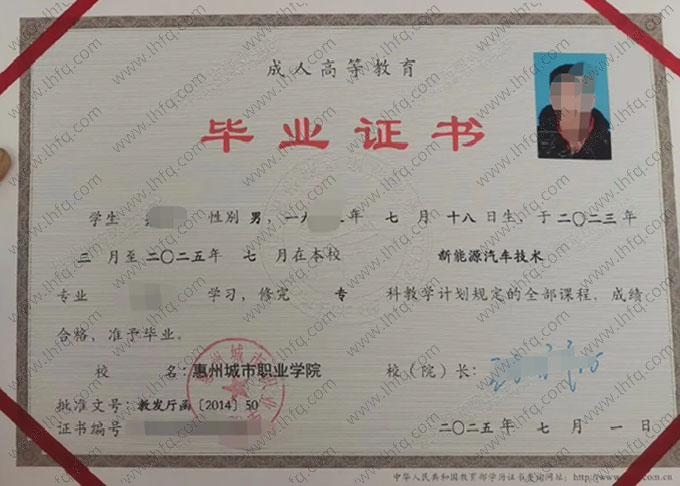 成人高等教育
毕业证书
学生 性别 男，一九 年 七 月 十八 日生，于二〇二三年
三 月至二〇二五年 七 月在本校 新能源汽车技术
专业 学习，修完 专 科教学计划规定的全部课程，成绩
合格，准予毕业。
校 名：惠州城市职业学院 校（院）长：
惠州城市职业
批准文号：教发厅函〔2014〕50
证书编号 二〇二五年 七 月 一 日
中华人民共和国教育部学历证书查询网址：http://www.chsi.com.cn
www.lhfq.com